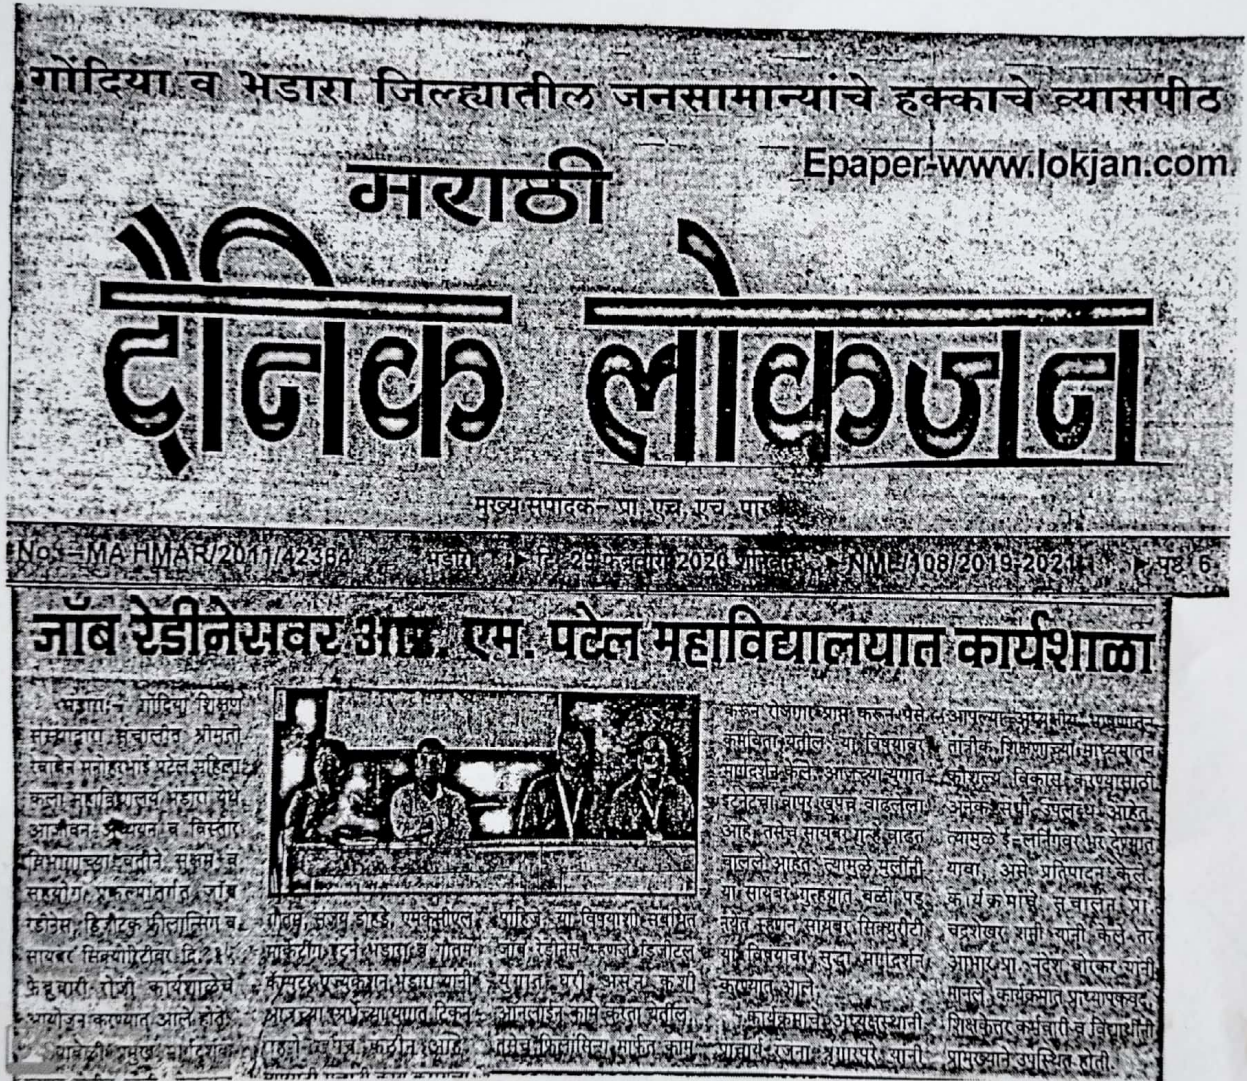 गोंदिया व भंडारा जिल्ह्यातील जनसामान्यांचे हक्काचे व्यासपीठ
Epaper-www.lokjan.com
मराठी
दैनिक लोकजन
मुख्य संपादक- प्रा. एच. एच. पारधी
No.-MAHMAR/2011/42384 भंडारा दि. 29 फेब्रुवारी 2020 शनिवार NMP/108/2019-2021 पृष्ठ 6
जॉब रेडीनेसवर आर. एम. पटेल महाविद्यालयात कार्यशाळा
भंडारा:- गोंदिया शिक्षण
संस्थाद्वारा संचालित श्रीमती
रेवाबेन मनोहरभाई पटेल महिला
कला महाविद्यालय भंडारा येथे
आजीवन अध्ययन व विस्तार
विभागाच्या वतीने सक्षम व
सहयोग प्रकल्पांतर्गत जॉब
रेडीनेस, फ्रीलान्सिंग व
सायबर सिक्योरिटीवर दि.
फेब्रुवारी रोजी कार्यशाळेचे
आयोजन करण्यात आले होते.
प्रमुख मार्गदर्शक
गौतम, संजय डोहडे, एमक्सीएल
मार्केटींग भंडारा व गौतम
भंडारा यांनी
आजच्या स्पर्धेच्या युगात टिकून
राहणे खूपच कठीण आहे.
पाहिजे या विषयाशी संबंधित
जॉब रेडीनेस म्हणजे डिजीटल
युगात घरी असून कशी
ऑनलाईन कामे करता येतील
तसेच मार्फत काम
करून रोजगार प्राप्त करून पैसे
कमविता येतील या विषयावर
मार्गदर्शन केले. आजच्या युगात
इंटरनेटचा वापर खूपच वाढलेला
आहे. तसेच सायबर गुन्हे वाढत
चालले आहेत. त्यामुळे मुलींनी
या सायबर गुन्ह्यात बळी पडू
नयेत म्हणून सायबर सिक्युरीटी
या विषयावर सुद्धा मार्गदर्शन
करण्यात आले.
कार्यक्रमाचे अध्यक्षस्थानी
प्राचार्य रंजना यांनी
आपल्या अध्यक्षीय भाषणातून
तांत्रीक शिक्षणाच्या माध्यमातून
कौशल्य विकास करण्यासाठी
अनेक संधी उपलब्ध आहेत.
त्यामुळे ई-लर्निंगवर भर देण्यात
यावा, असे प्रतिपादन केले.
कार्यक्रमाचे संचालन प्रा.
चंद्रशेखर यांनी केले तर
आभार प्रा. बोरकर यांनी
मानले. कार्यक्रमात प्राध्यापकवृंद,
शिक्षकेतर कर्मचारी व विद्यार्थीनी
प्रामुख्याने उपस्थित होती.